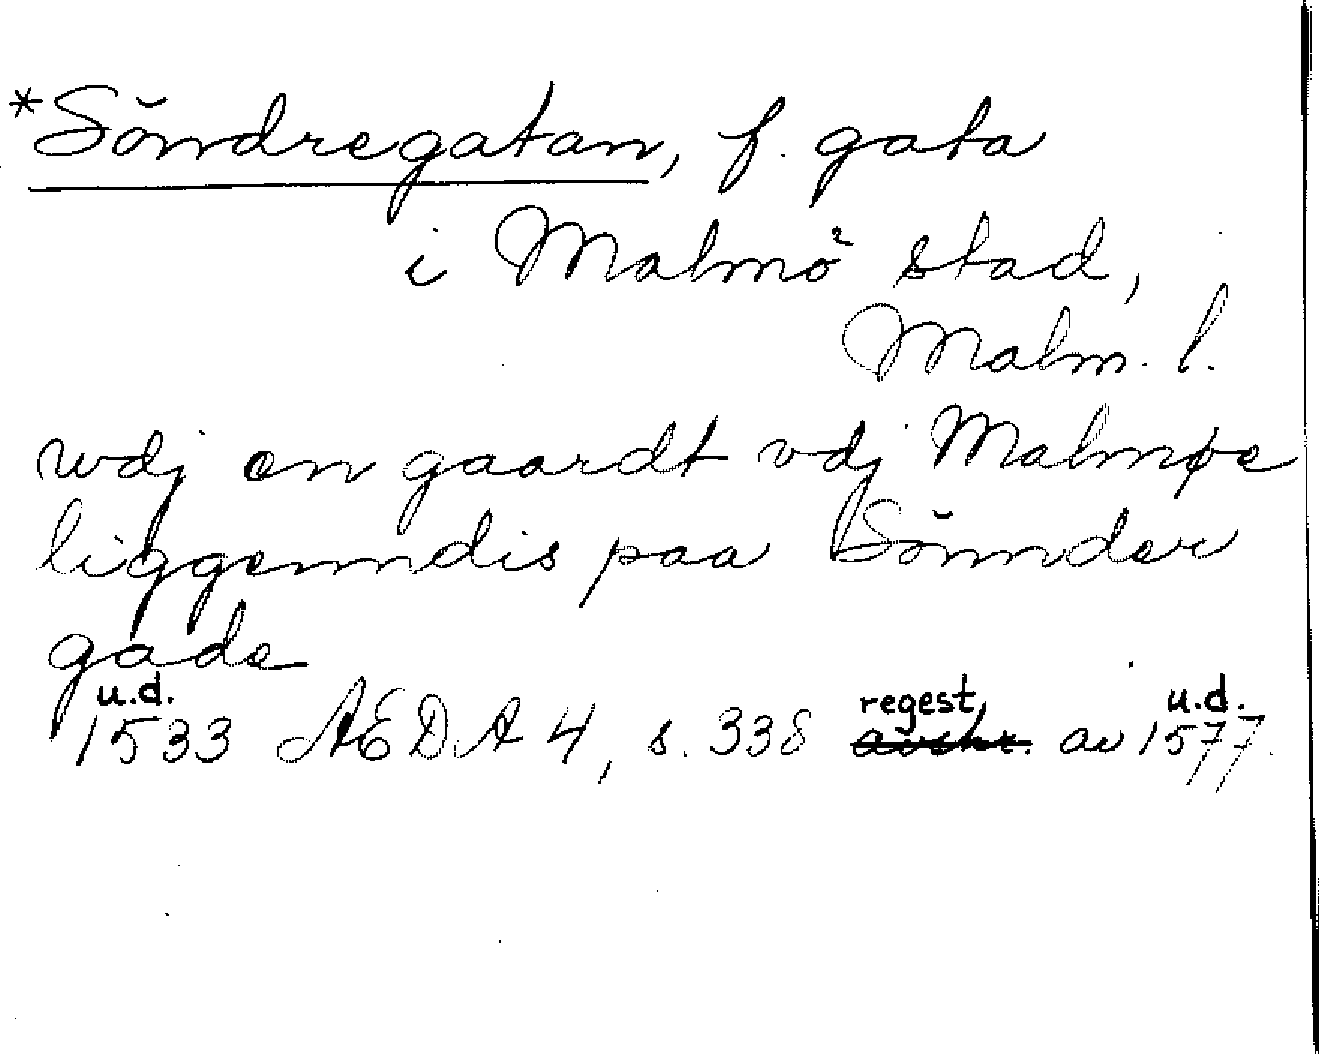 *Söndregatan, f. gata
i Malmö stad,
Malm. l.
wdj en gaardt vdj Malmøe
liggenndis paa Sönnder
gade
u.d. regest, u.d.
1533 AEDA 4, s. 338 avskr. av 1577.